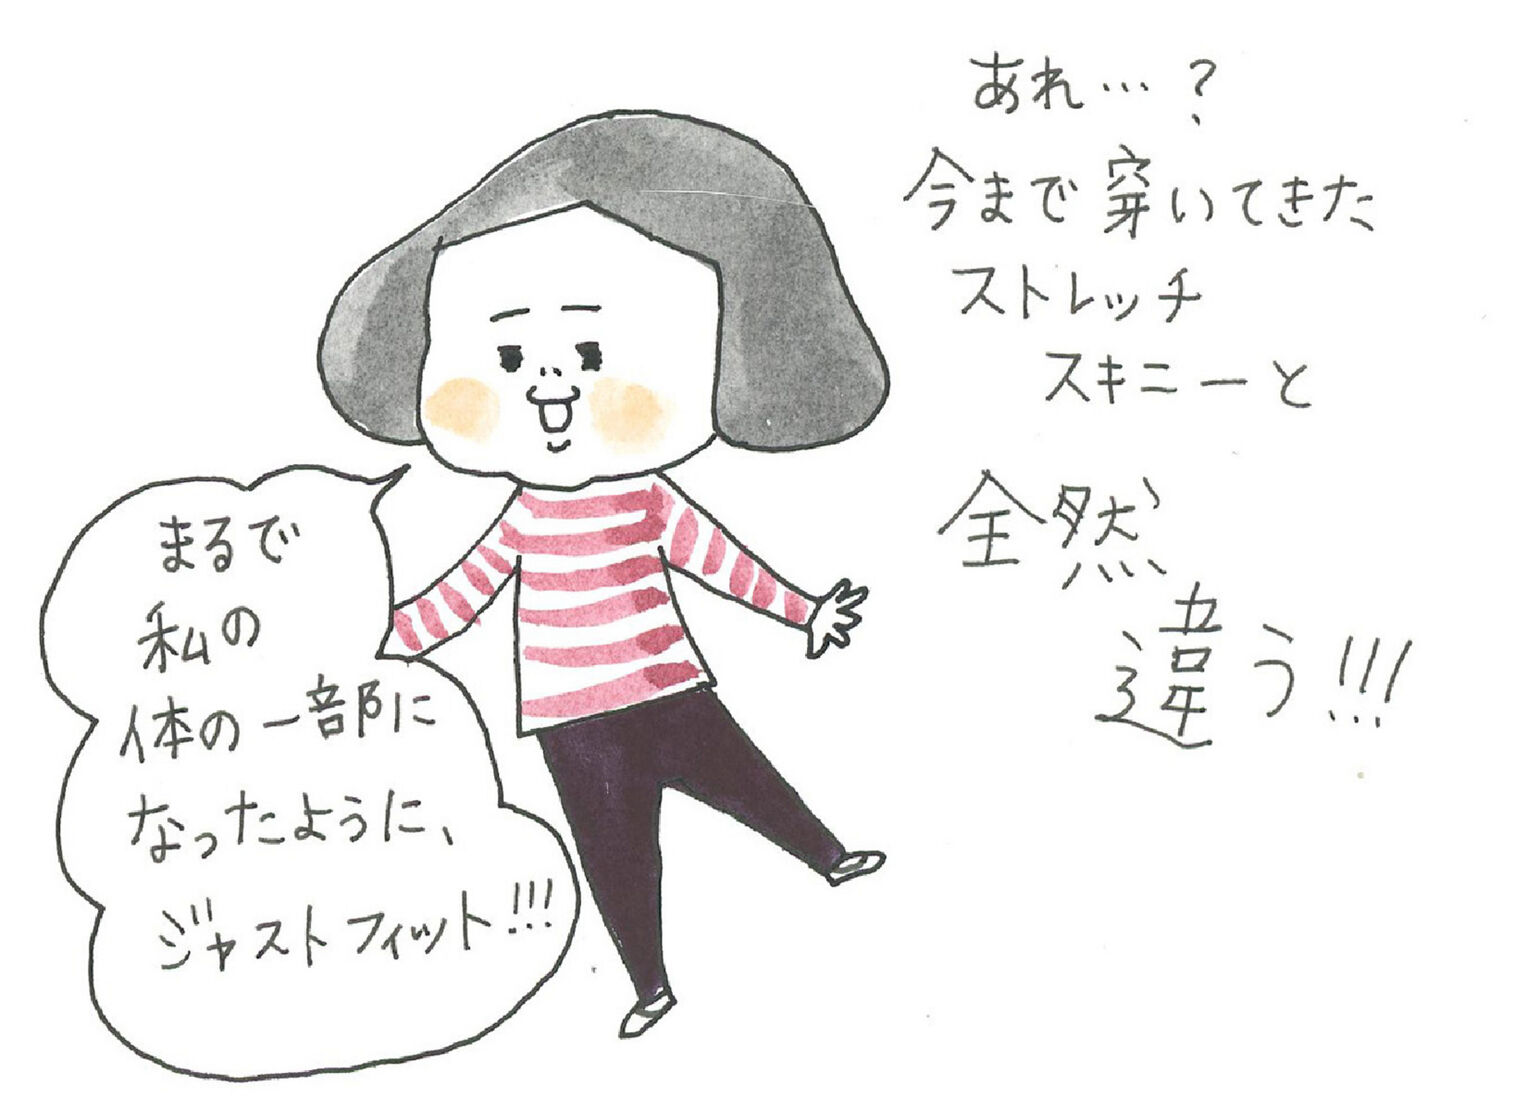 あれ…？
今まで穿いてきた
ストレッチ
スキニーと
全然
違う!!!
まるで
私の
体の一部に
なったように、
ジャストフィット!!!